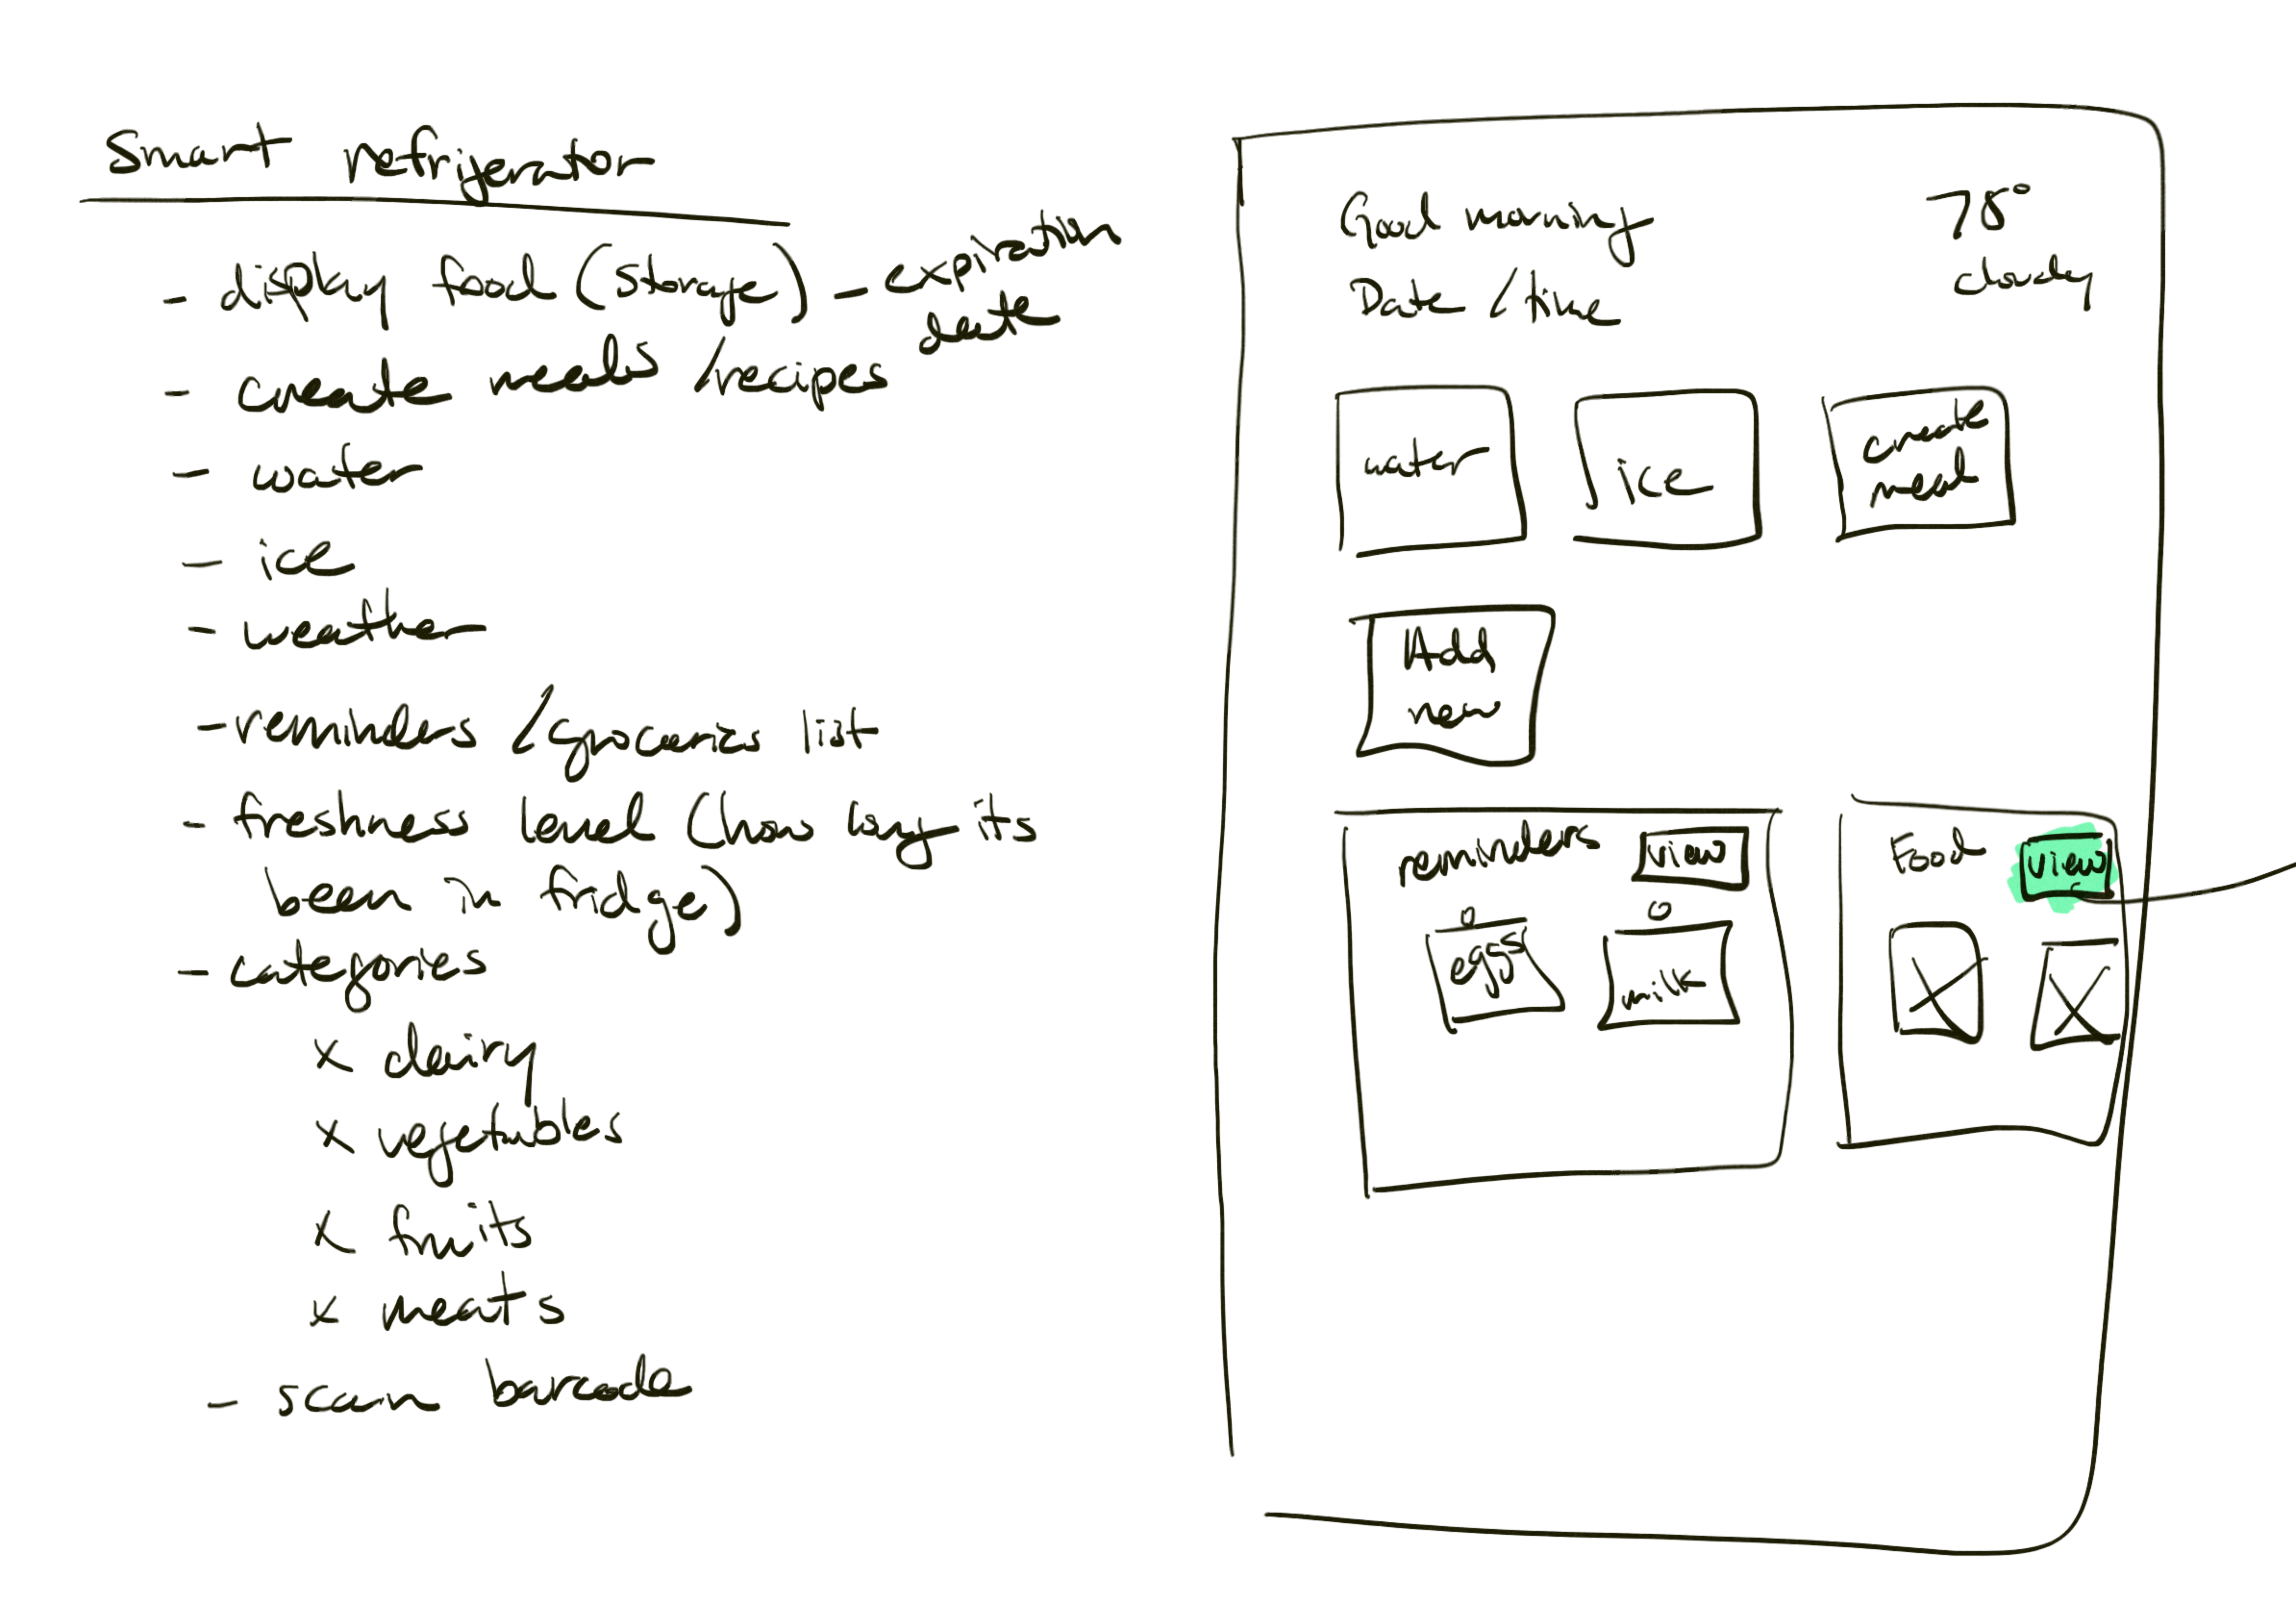 Smart refrigerator
- display food (storage) - expiration date
- create meals / recipes
- water
- ice
- weather
- reminders / groceries list
- freshness level (how long its
been in fridge)
- categories
x dairy
x vegetables
x fruits
x meats
- scan barcode
Good morning
Date / time
78°
cloudy
water
ice
create
meal
Add
new
reminders
view
eggs
milk
Food
view